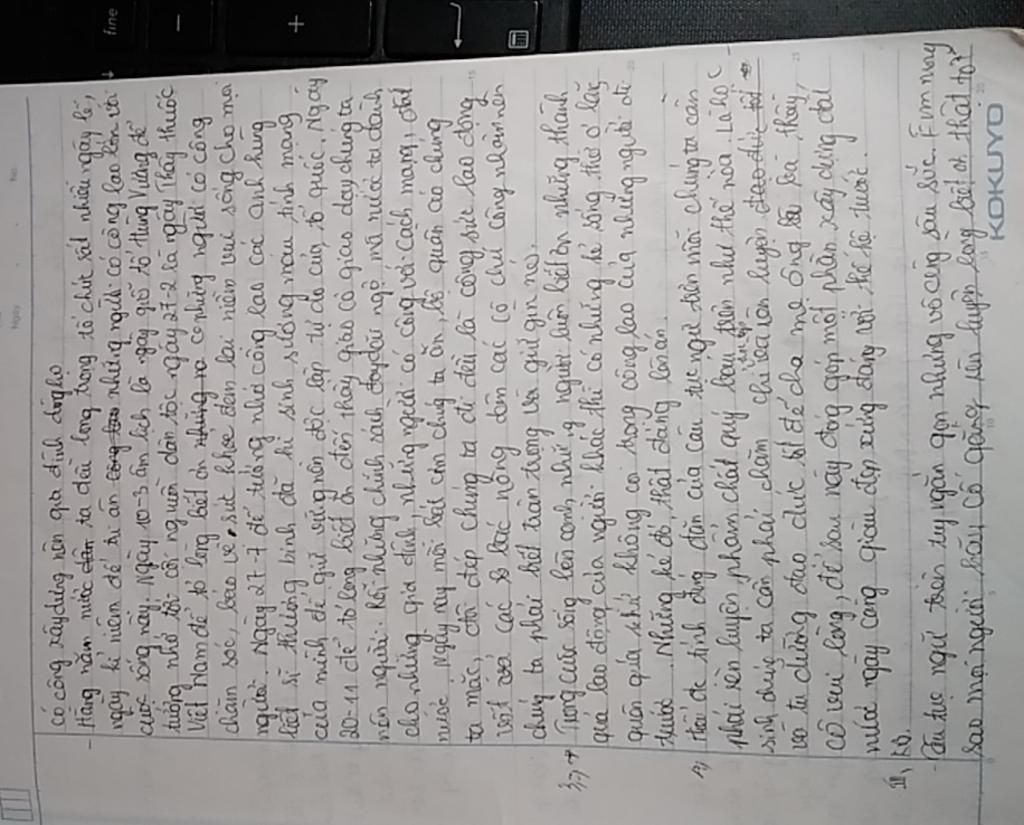 có công xây dựng nên gia đình dòng họ
- Hàng năm nước dân ta đều long trọng tổ chức rất nhiều ngày lễ,
ngày kỉ niệm để tri ân công lao những người có công lao lớn với
cuộc sống này. Ngày 10-3 âm lịch là ngày giỗ tổ Hùng Vương để
tưởng nhớ tới cội nguồn dân tộc ngày 27-2 là ngày Thầy thuốc
Việt Nam để tỏ lòng biết ơn những ra co những người có công
chăm sóc, bảo vệ sức khỏe đem lại niềm vui sống cho mọi
người. Ngày 27-7 để tưởng nhớ công lao các anh hùng
liệt sĩ thương binh đã hi sinh xương máu tính mạng
của mình để giữ vững nền độc lập tự do của tổ quốc, Ngày
20-11 để tỏ lòng biết ơn đến thầy giáo cô giáo dạy chúng ta
nên người. Rồi những chính sách đãi ngộ mà nước ta dành
cho những gia đình, những người có công với cách mạng, đất
nước. Ngày nay mỗi bát cơm chúng ta ăn, bộ quần áo chúng
ta mặc, đôi dép chúng ta đi đều là công sức lao động
vất vả các bác nông dân các cô chú công nhân nên
chúng ta phải biết trân trọng và giữ gìn nó.
3, → Trong cuộc sống bên cạnh những người luôn biết ơn những thành
quả lao động của người khác thì có những kẻ sống thờ ơ lãng
quên quá khứ không coi trọng công lao của những người đi
trước. Những kẻ đó, thật đáng lên án.
4, Từ tính đúng đắn của câu tục ngữ trên mỗi chúng ta cần
phải rèn luyện phẩm chất quý báu trên như thế nào. Là học
sinh chúng ta cần phải chăm chỉ học tập rèn luyện đạo đức tốt
và tu dưỡng đạo đức tốt để cha mẹ ông bà, thầy
cô vui lòng, để sau này đóng góp một phần xây dựng đất
nước ngày càng giàu đẹp xứng đáng với thế hệ trước.
III, KB.
- Câu tục ngữ trên tuy ngắn gọn nhưng vô cùng sâu sắc. Em mong
sao mọi người hãy cố gắng rèn luyện lòng biết ơn thật tốt
KOKUYO
No.
Ngày
fine